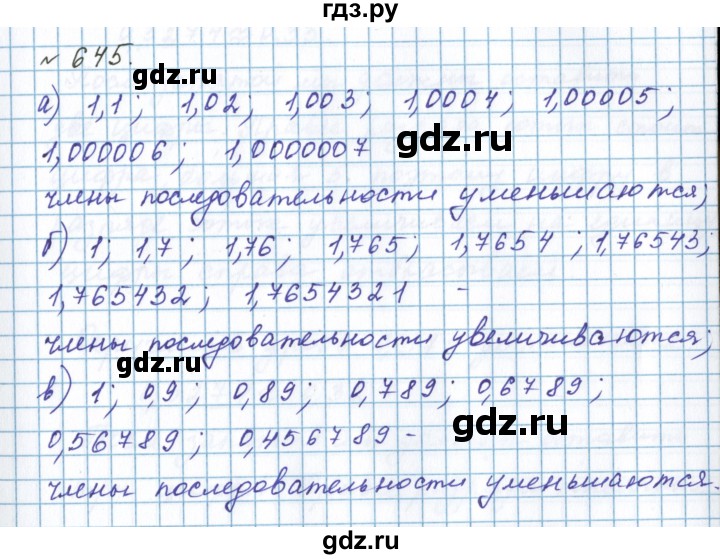 гдз.ру
№ 645.
а) 1,1; 1,02; 1,003; 1,0004; 1,00005;
1,000006; 1,0000007
члены последовательности уменьшаются;
б) 1; 1,7; 1,76; 1,765; 1,7654; 1,76543;
1,765432; 1,7654321 -
члены последовательности увеличиваются;
в) 1; 0,9; 0,89; 0,789; 0,6789;
0,56789; 0,456789 -
члены последовательности уменьшаются.
gdz.ru
gdz.ru
gdz.ru
gdz.ru
gdz.ru
гдз.ру